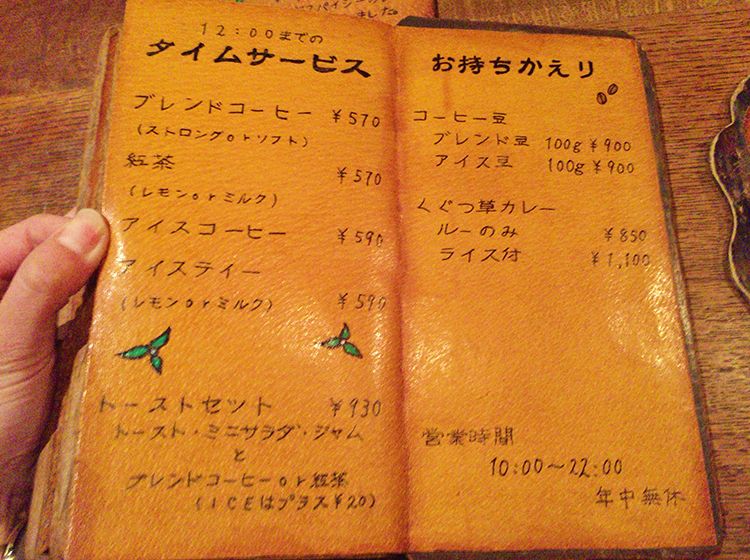 ました。
12:00までの
タイムサービス
ブレンドコーヒー ¥570
(ストロングorソフト)
紅茶 ¥570
(レモンorミルク)
アイスコーヒー ¥590
アイスティー
(レモンorミルク) ¥590
トーストセット ¥930
トースト・ミニサラダ・ジャム
と
ブレンドコーヒーor紅茶
(ICEはプラス¥20)
お持ちかえり
コーヒー豆
ブレンド豆 100g ¥900
アイス豆 100g ¥900
くぐつ草カレー
ルーのみ ¥850
ライス付 ¥1,100
営業時間
10:00～22:00
年中無休